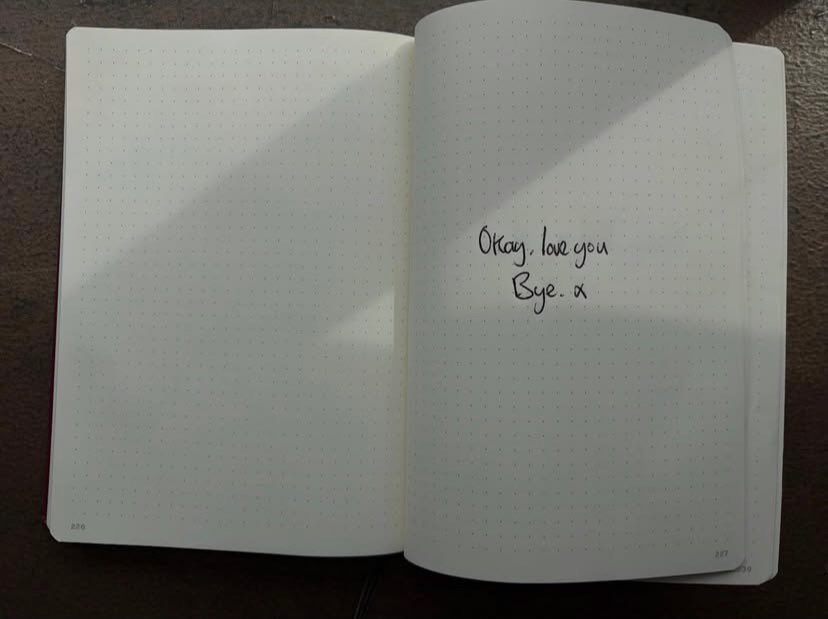 Okay, love you
Bye. x
226
227